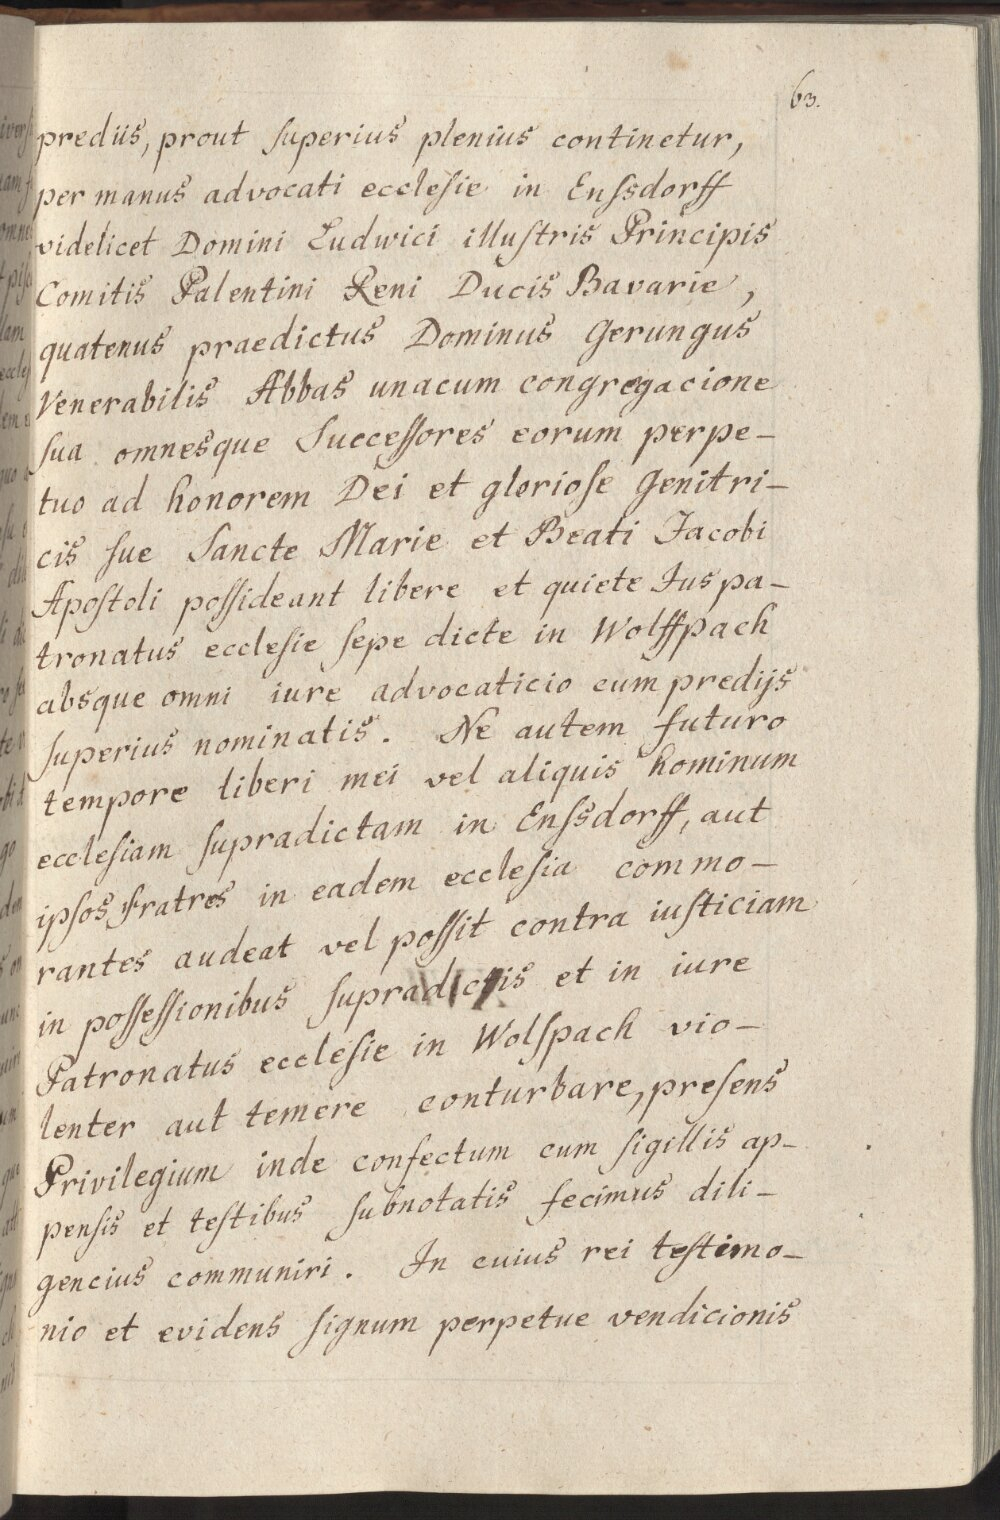 63.
prediis, prout superius plenius continetur,
per manus advocati ecclesie in Enssdorff
videlicet Domini Ludwici illustris Principis
Comitis Palentini Reni Ducis Bavarie,
quatenus praedictus Dominus Gerungus
Venerabilis Abbas unacum congregacione
sua omnesque Successores eorum perpe-
tuo ad honorem Dei et gloriose Genitri-
cis sue Sancte Marie et Beati Jacobi
Apostoli possideant libere et quiete Jus pa-
tronatus ecclesie sepe dicte in Wolffpach
absque omni iure advocaticio cum predijs
superius nominatis. Ne autem futuro
tempore liberi mei vel aliquis hominum
ecclesiam supradictam in Enssdorff, aut
ipsos Fratres in eadem ecclesia commo-
rantes audeat vel possit contra iusticiam
in possessionibus supradictis et in iure
Patronatus ecclesie in Wolspach vio-
lenter aut temere conturbare, presens
Privilegium inde confectum cum sigillis ap-
pensis et testibus subnotatis fecimus dili-
gencius communiri. In cuius rei testimo-
nio et evidens signum perpetue vendicionis